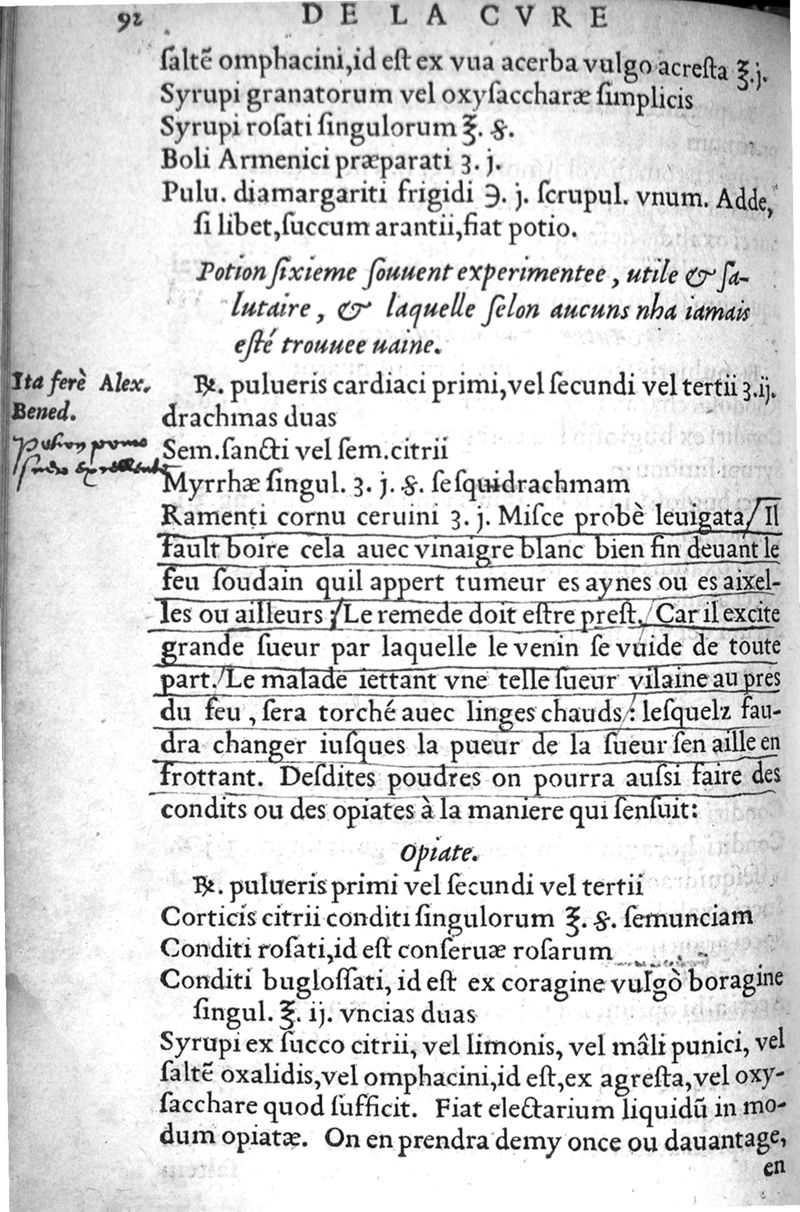 92 DE LA CVRE
ſaltẽ omphacini,id eſt ex vua acerba vulgo acreſta ℥.j.
Syrupi granatorum vel oxyſaccharæ ſimplicis
Syrupi roſati ſingulorum ℥. ꝸ.
Boli Armenici præparati ʒ. j.
Pulu. diamargariti frigidi ℈. j. ſcrupul. vnum. Adde,
ſi libet,ſuccum arantii,fiat potio.
Potion ſixieme ſouuent experimentee, utile & ſa-
lutaire, & laquelle ſelon aucuns nha iamais
eſté trouuee uaine.
Ita ferè Alex.
Bened.
℞. pulueris cardiaci primi,vel ſecundi vel tertii ʒ.ij.
drachmas duas
Sem.ſancti vel ſem.citrii
Myrrhæ ſingul. ʒ. j. ꝸ. ſeſquidrachmam
Ramenti cornu ceruini ʒ. j. Miſce probè leuigata/ Il
fault boire cela auec vinaigre blanc bien fin deuant le
feu ſoudain quil appert tumeur es aynes ou es aixel-
les ou ailleurs :/Le remede doit eſtre preſt./ Car il excite
grande ſueur par laquelle le venin ſe vuide de toute
part./Le malade iettant vne telle ſueur vilaine au pres
du feu , ſera torché auec linges chauds/: leſquelz fau-
dra changer iuſques la pueur de la ſueur ſen aille en
frottant. Deſdites poudres on pourra auſsi faire des
condits ou des opiates à la maniere qui ſenſuit:
Opiate.
℞. pulueris primi vel ſecundi vel tertii
Corticis citrii conditi ſingulorum ℥. ꝸ. ſemunciam
Conditi roſati,id eſt conſeruæ roſarum
Conditi bugloſſati, id eſt ex coragine vulgò boragine
ſingul. ℥. ij. vncias duas
Syrupi ex ſucco citrii, vel limonis, vel mâli punici, vel
ſaltẽ oxalidis,vel omphacini,id eſt,ex agreſta,vel oxy-
ſacchare quod ſufficit. Fiat electarium liquidũ in mo-
dum opiatæ. On en prendra demy once ou dauantage,
en